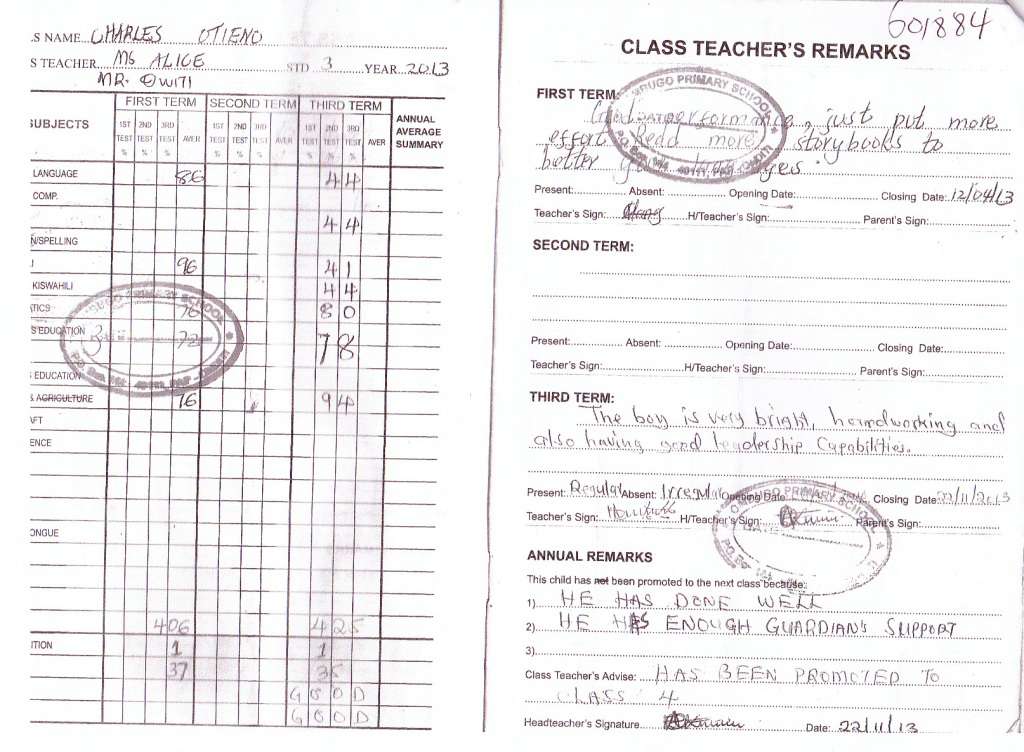 .S NAME... CHARLES OTIENO
S TEACHER... MS ALICE STD 3 YEAR...2013
MR. OWITI
FIRST TERM SECOND TERM THIRD TERM ANNUAL AVERAGE SUMMARY
SUBJECTS 1ST TEST % 2ND TEST % 3RD TEST % AVER 1ST TEST % 2ND TEST % 3RD TEST % AVER 1ST TEST % 2ND TEST % 3RD TEST % AVER
LANGUAGE 86 44
COMP.
44
N/SPELLING
96 41
KISWAHILI 44
TICS 76 80
S EDUCATION 72 78
EDUCATION
& AGRICULTURE 76 94
AFT
ENCE
ONGUE
406 425
ITION 1 1
37 35
GOOD
GOOD
601884
CLASS TEACHER'S REMARKS
FIRST TERM:
performance, just put more
effort. Read more storybooks to
better
Present: Absent: Opening Date: Closing Date: 12/04/13
Teacher's Sign: H/Teacher's Sign: Parent's Sign:
SECOND TERM:
Present: Absent: Opening Date: Closing Date:
Teacher's Sign: H/Teacher's Sign: Parent's Sign:
THIRD TERM:
The boy is very bright, hardworking and
also having good leadership capabilities.
Present: Regular Absent: Irregular Opening Date Closing Date: 22/11/2013
Teacher's Sign: H/Teacher's Sign: Parent's Sign:
OMBUGO PRIMARY SCHOOL
ANNUAL REMARKS
This child has not been promoted to the next class because:
1) HE HAS DONE WELL
2) HE HAS ENOUGH GUARDIAN'S SUPPORT
3)
Class Teacher's Advise: HAS BEEN PROMOTED TO
CLASS 4
Headteacher's Signature Date: 22/11/13